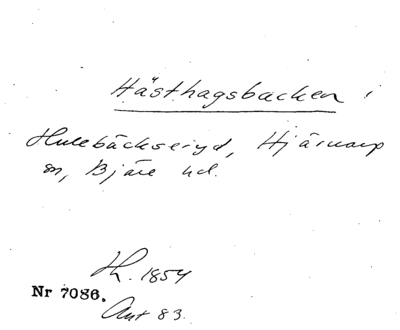 Hästhagsbacken i
Hulebäckseryd, Hjärnarp
sn, Bjäre hd.
Lh. 1854
Nr 7086.
Ant 83.